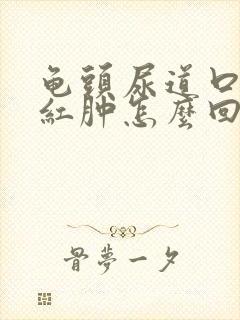 龟頭尿道口
紅肿怎麼回
骨夢一夕